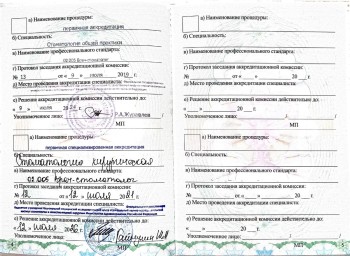 а) Наименование процедуры:
первичная аккредитация
б) Специальность:
Стоматология общей практики
в) Наименование профессионального стандарта:
02.005 Врач-стоматолог
г) Протокол заседания аккредитационной комиссии:
№ 13 от « 9 » июля 2019 г.
д) Место проведения аккредитации специалиста:
е) Решение аккредитационной комиссии действительно до:
« 9 » июля 2024 г.
Уполномоченное лицо:
МП
а) Наименование процедуры:
первичная специализированная аккредитация
б) Специальность:
Стоматология хирургическая
в) Наименование профессионального стандарта:
02.005 Врач-стоматолог
г) Протокол заседания аккредитационной комиссии:
№ 12 от « 12 » июля 20 21 г.
д) Место проведения аккредитации специалиста:
е) Решение аккредитационной комиссии действительно до:
« 12 » июля 20 26 г.
Уполномоченное лицо
4
а) Наименование процедуры:
б) Специальность:
в) Наименование профессионального стандарта:
г) Протокол заседания аккредитационной комиссии:
№ от « » 20 г.
д) Место проведения аккредитации специалиста:
е) Решение аккредитационной комиссии действительно до:
« » 20 г.
Уполномоченное лицо:
МП
а) Наименование процедуры:
б) Специальность:
в) Наименование профессионального стандарта:
г) Протокол заседания аккредитационной комиссии:
№ от « » 20 г.
д) Место проведения аккредитации специалиста:
е) Решение аккредитационной комиссии действительно до:
« » 20 г.
Уполномоченное лицо:
МП
5